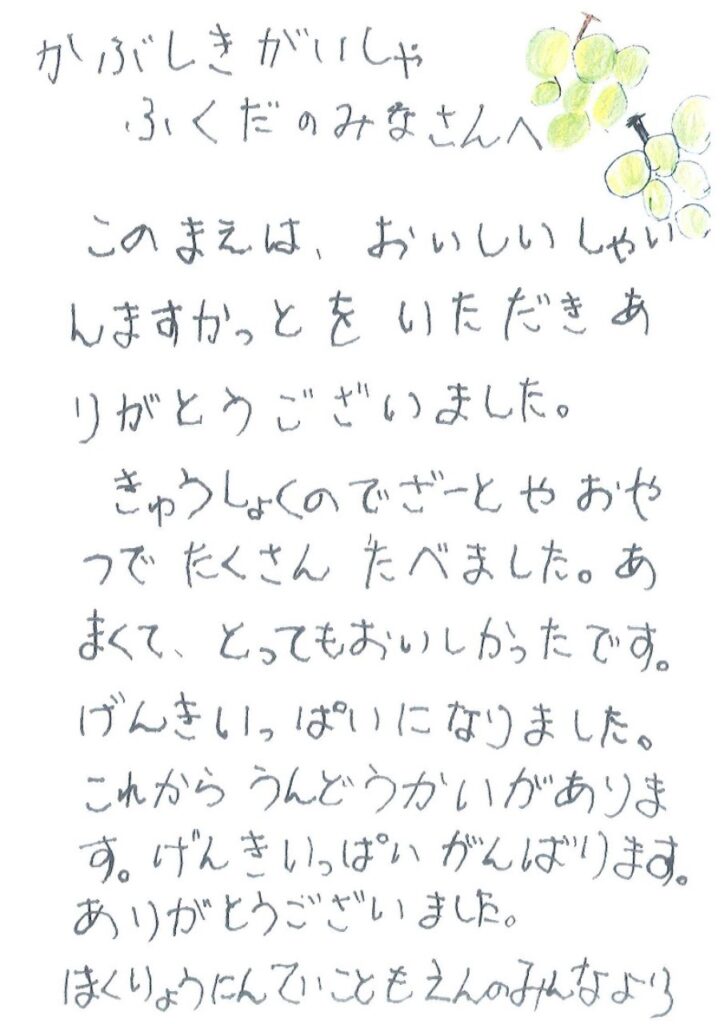 かぶしきがいしゃ
ふくだのみなさんへ
このまえは、おいしいしゃい
んますかっとを いただきあ
りがとうございました。
きゅうしょくのでざーとやおや
つで たくさん たべました。あ
まくて、とってもおいしかったです。
げんきいっぱいになりました。
これから うんどうかいがありま
す。げんきいっぱい がんばります。
ありがとうございました。
はくりょうにんていこどもえんのみんなより